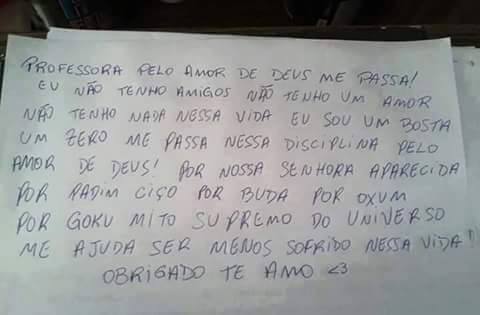 PROFESSORA PELO AMOR DE DEUS ME PASSA!
EU NÃO TENHO AMIGOS NÃO TENHO UM AMOR
NÃO TENHO NADA NESSA VIDA EU SOU UM BOSTA
UM ZERO ME PASSA NESSA DISCIPLINA PELO
AMOR DE DEUS! POR NOSSA SENHORA APARECIDA
POR PADIM CIÇO POR BUDA POR OXUM
POR GOKU MITO SUPREMO DO UNIVERSO
ME AJUDA SER MENOS SOFRIDO NESSA VIDA!
OBRIGADO TE AMO <3